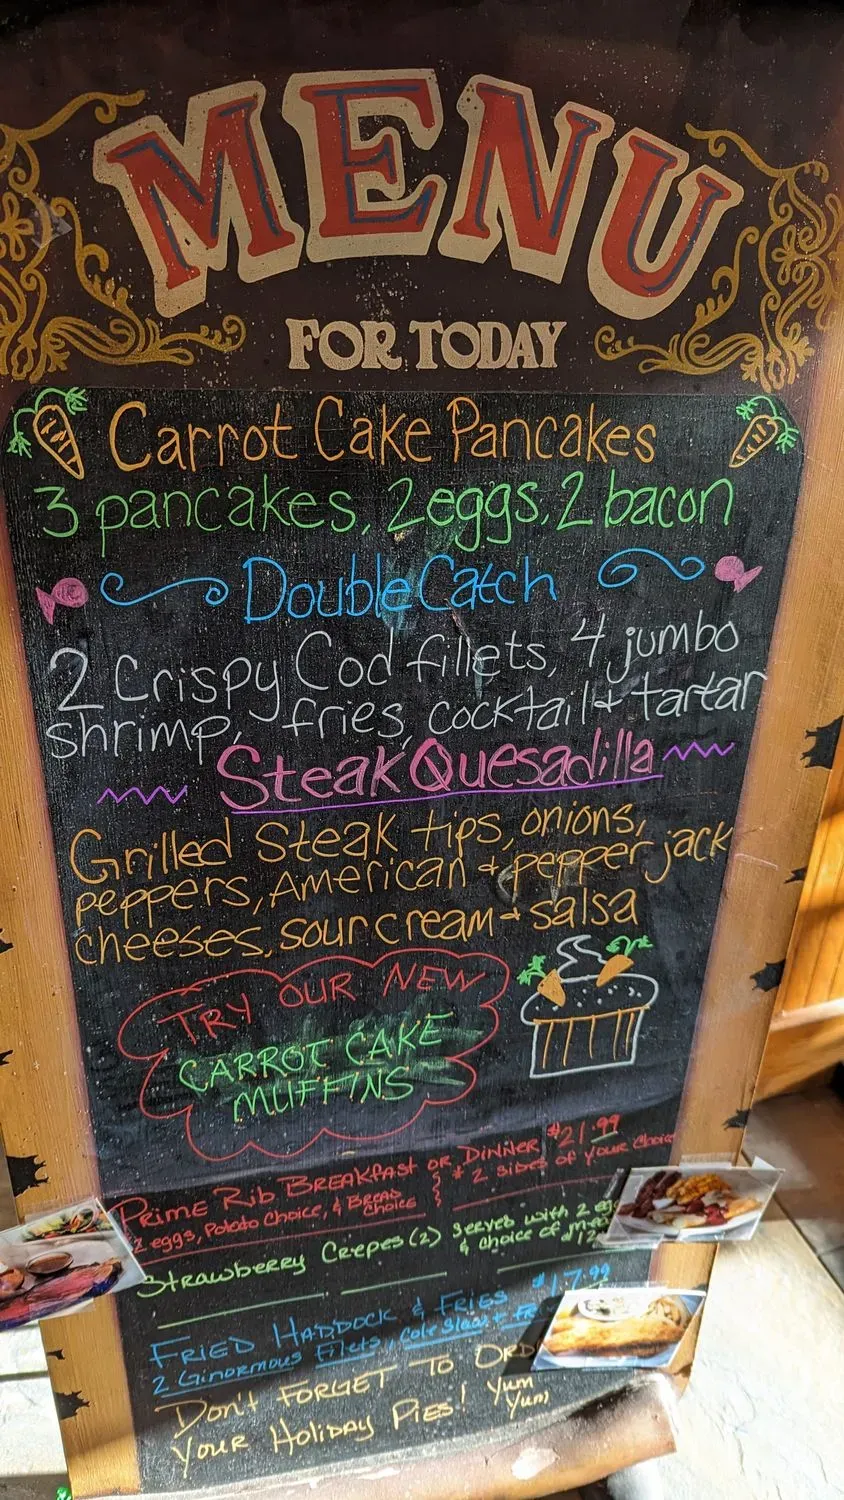 MENU
FOR TODAY
Carrot Cake Pancakes
3 pancakes, 2 eggs, 2 bacon
Double Catch
2 Crispy Cod fillets, 4 jumbo
shrimp, fries, cocktail + tartar
Steak Quesadilla
Grilled steak tips, onions,
peppers, American + pepper jack
cheeses, sour cream + salsa
TRY OUR NEW
CARROT CAKE
MUFFINS
PRIME RIB BREAKFAST OR DINNER $21.99
2 eggs, Potato Choice, & BREAD CHOICE } + 2 sides of your choice
STRAWBERRY CREPES (2) Serves with 2
& choice of
FRIED HADDOCK & FRIES $17.99
2 Ginormous Filets, Cole Slaw +
Don't FORGET TO
YOUR HOLIDAY PIES! Yum
Yum